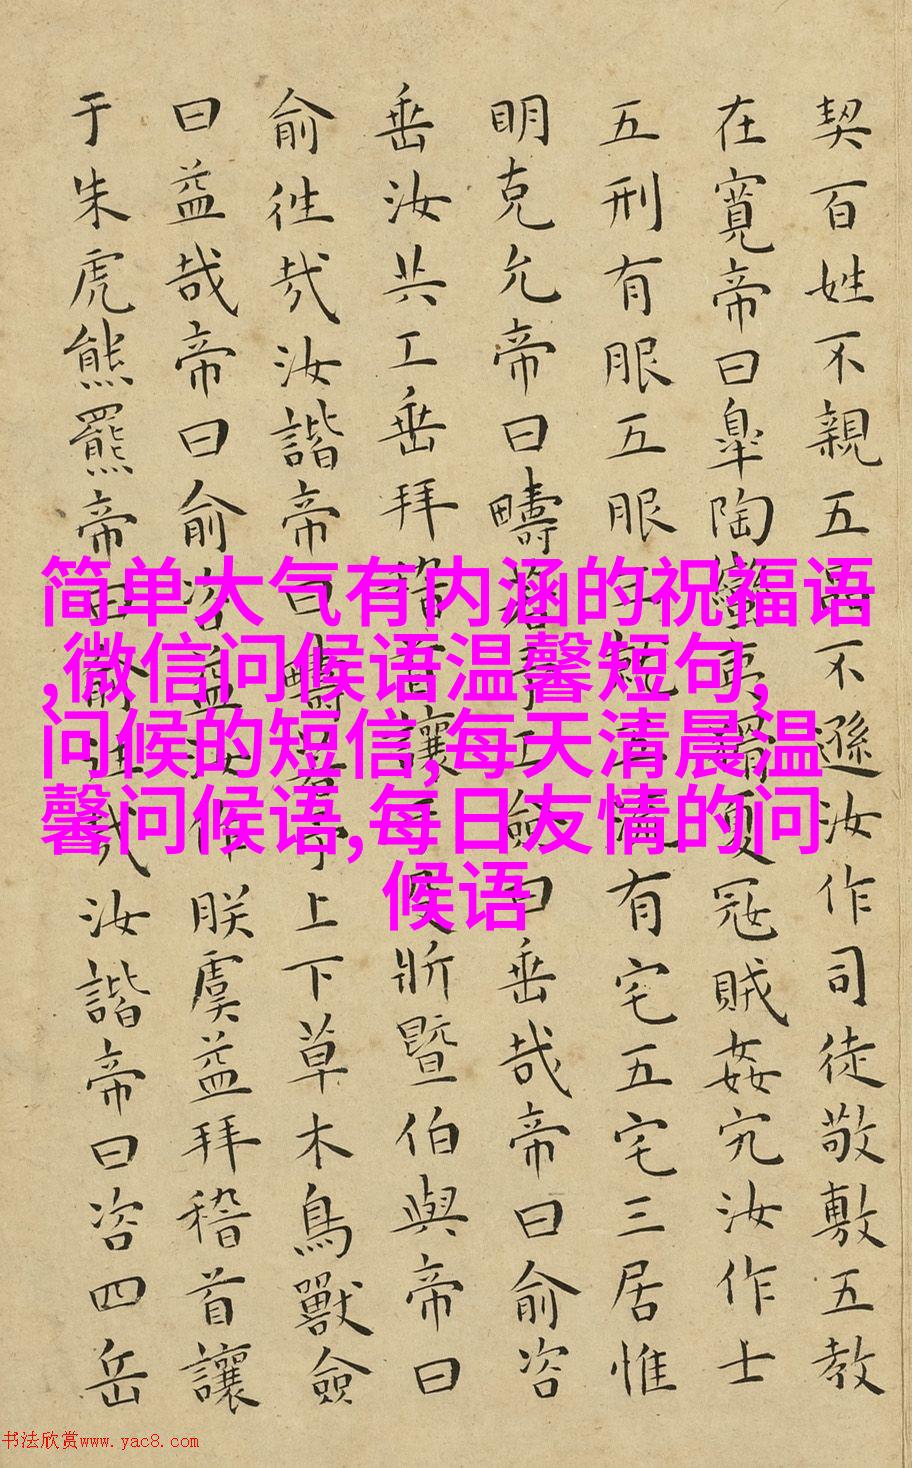 契百姓不親五品不遜汝作司徒敬敷五教
在寬帝曰皐陶蠻夷猾夏冦賊姦宄汝作士
五刑有服五服三就五流有宅五宅三居惟
明克允帝曰疇若予工僉曰垂哉帝曰俞咨
垂汝共工垂拜稽首讓于殳斨暨伯與帝曰
俞徃哉汝諧帝曰疇若予上下草木鳥獸僉
曰益哉帝曰俞咨益汝作朕虞益拜稽首讓
于朱虎熊羆帝曰俞徃哉汝諧帝曰咨四岳
简单大气有内涵的祝福语
,微信问候语温馨短句,
问候的短信,每天清晨温
馨问候语,每日友情的问
候语
书法欣赏www.yac8.com